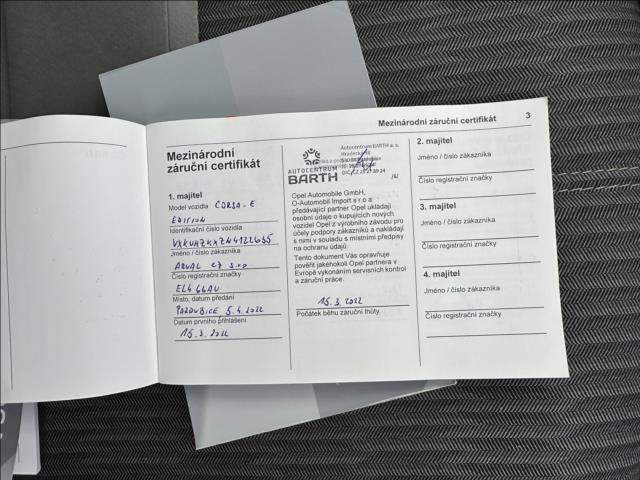 Mezinárodní záruční certifikát 3
Mezinárodní
záruční certifikát
1. majitel
Model vozidla CORSA-E
EDITION
Identifikační číslo vozidla
Jméno / číslo zákazníka
ARVAL CZ s.r.o
Číslo registrační značky
EL4 66AU
Místo, datum předání
PARDUBICE 5.4.2022
Datum prvního přihlášení
15.3.2022
Autocentrum BARTH a. s.
AUTOCENTRUM
BARTH
Opel Automobile GmbH,
O-Automobil Import s r o a
předávající partner Opel ukládají
osobní údaje o kupujících nových
vozidel Opel z výrobního závodu pro
účely podpory zákazníků a nakládají
s nimi v souladu s místními předpisy
na ochranu údajů.
Tento dokument Vás opravňuje
pověřit jakéhokoli Opel partnera v
Evropě vykonáním servisních kontrol
a záruční práce.
15.3.2022
Počátek běhu záruční lhůty
2. majitel
Jméno / číslo zákazníka
Číslo registrační značky
3. majitel
Jméno / číslo zákazníka
Číslo registrační značky
4. majitel
Jméno / číslo zákazníka
Číslo registrační značky